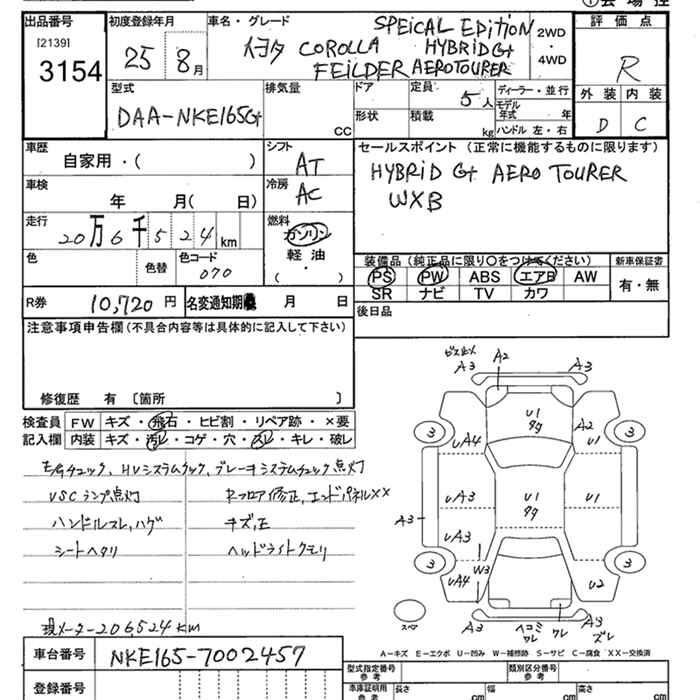 出品番号
[2139]
3154
初度登録年月
25 8月
車名・グレード
トヨタ COROLLA FEILDER
SPEICAL EDITION
HYBRID G+
AERO TOURER
2WD
・
4WD
評価点
R
外装 内装
D C
型式
DAA-NKE165G+
排気量
CC
ドア
形状
定員
5人
積載
kg
ディーラー・並行
モデル
年式 年
ハンドル 左・右
車歴
自家用・( )
シフト
AT
車検
年 月( 日)
冷房
AC
セールスポイント (正常に機能するものに限ります)
HYBRID G+ AERO TOURER
WXB
走行
20万6千524km
燃料
ガソリン
軽油
(・)
色
色替
色コード
070
装備品(純正品に限り○をつけてください)
PS PW ABS エアB AW
SR ナビ TV カワ
新車保証書
有・無
R券 10,720円
名変通知期 月 日
後日品
注意事項申告欄(不具合内容等は具体的に記入して下さい)
修復歴 有〔箇所 〕
検査員
記入欄
FW キズ・飛石・ヒビ割・リペア跡・×要
内装 キズ・汚レ・コゲ・穴・スレ・キレ・破レ
チェック、HVシステムチェック、ブレーキシステムチェック点灯
VSCランプ点灯
ハンドルスレ、ハゲ
シートヘタリ
Rフロア修正、エンドパネルXX
キズ、正
ヘッドライトクモリ
現メーター206524km
A3 A2 A3
3 3
U1
UA4 A2 U1
A3 UA3 U1 U1
UA3
W3
3 3
UA4 U2
スペア
A3 ヘコミ ワレ ワレ A3 ズレ
A−キズ E−エクボ U−凹み W−補修跡 S−サビ C−腐食 XX−交換済
車台番号
NKE165-7002457
登録番号
型式指定番号
参考
類別区分番号
参考
車庫証明用
参考
長さ cm
幅 cm
高さ cm